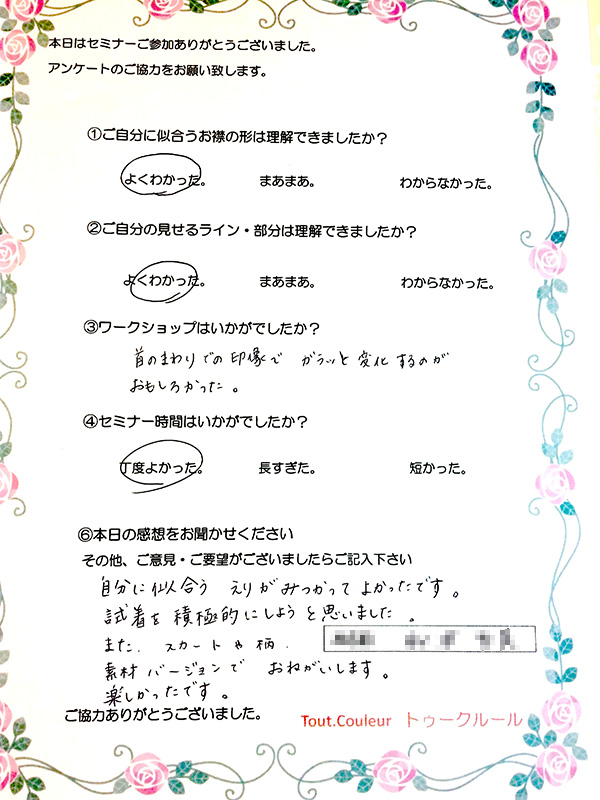 本日はセミナーご参加ありがとうございました。
アンケートのご協力をお願い致します。
①ご自分に似合うお襟の形は理解できましたか？
よくわかった。 まあまあ。 わからなかった。
②ご自分の見せるライン・部分は理解できましたか？
よくわかった。 まあまあ。 わからなかった。
③ワークショップはいかがでしたか？
首のまわりでの印像で ガラッと変化するのが
おもしろかった。
④セミナー時間はいかがでしたか？
丁度よかった。 長すぎた。 短かった。
⑥本日の感想をお聞かせください
その他、ご意見・ご要望がございましたらご記入下さい
自分に似合う えりがみつかって よかったです。
試着を積極的にしようと思いました。
また、スカートや柄、
素材バージョンで おねがいします。
楽しかったです。
ご協力ありがとうございました。
Tout.Couleur トゥークルール